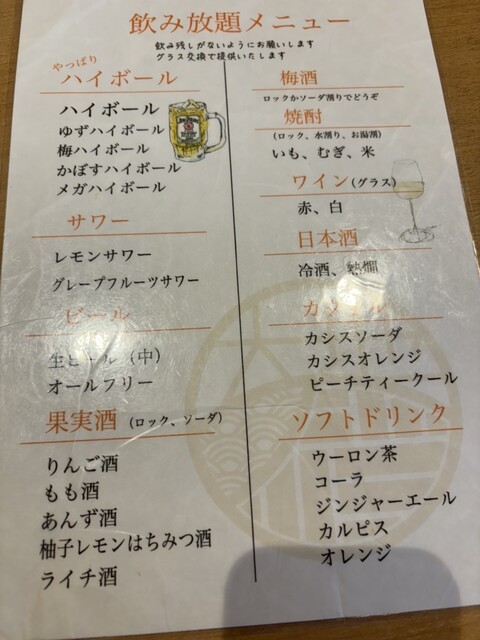 飲み放題メニュー
飲み残しがないようにお願いします
グラス交換で提供いたします
やっぱり
ハイボール
ハイボール
ゆずハイボール
梅ハイボール
かぼすハイボール
メガハイボール
サワー
レモンサワー
グレープフルーツサワー
ビール
生ビール（中）
オールフリー
果実酒（ロック、ソーダ）
りんご酒
もも酒
あんず酒
柚子レモンはちみつ酒
ライチ酒
梅酒
ロックかソーダ割りでどうぞ
焼酎
（ロック、水割り、お湯割）
いも、むぎ、米
ワイン（グラス）
赤、白
日本酒
冷酒、熱燗
カクテル
カシスソーダ
カシスオレンジ
ピーチティークール
ソフトドリンク
ウーロン茶
コーラ
ジンジャーエール
カルピス
オレンジ